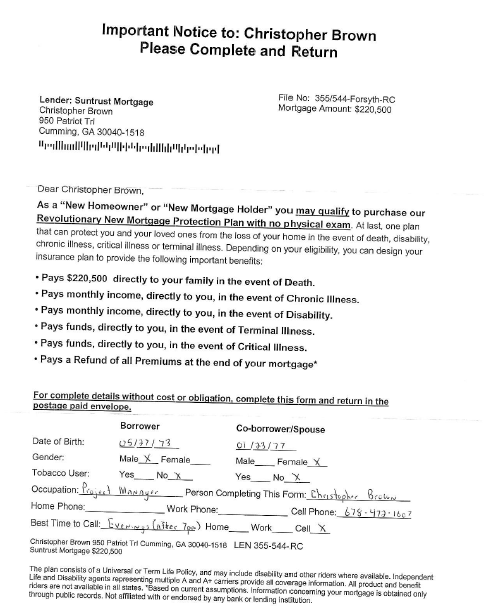 Important Notice to: Christopher Brown
Please Complete and Return
Lender: Suntrust Mortgage
Christopher Brown
950 Patriot Trl
Cumming, GA 30040-1518
File No: 355/544-Forsyth-RC
Mortgage Amount: $220,500
Dear Christopher Brown,
As a "New Homeowner" or "New Mortgage Holder" you may qualify to purchase our
Revolutionary New Mortgage Protection Plan with no physical exam. At last, one plan
that can protect you and your loved ones from the loss of your home in the event of death, disability,
chronic illness, critical illness or terminal illness. Depending on your eligibility, you can design your
insurance plan to provide the following important benefits:
• Pays $220,500 directly to your family in the event of Death.
• Pays monthly income, directly to you, in the event of Chronic Illness.
• Pays monthly income, directly to you, in the event of Disability.
• Pays funds, directly to you, in the event of Terminal Illness.
• Pays funds, directly to you, in the event of Critical Illness.
• Pays a Refund of all Premiums at the end of your mortgage*
For complete details without cost or obligation, complete this form and return in the
postage paid envelope.
Borrower Co-borrower/Spouse
Date of Birth:
Gender: Male X Female Male Female X
Tobacco User: Yes No X Yes No X
Occupation: Project Manager Person Completing This Form: Christopher Brown
Home Phone: Work Phone: Cell Phone: 678-
Best Time to Call: Evenings (after 7pm) Home Work Cell X
Christopher Brown 950 Patriot Trl Cumming, GA 30040-1518 LEN 355-544-RC
Suntrust Mortgage $220,500
The plan consists of a Universal or Term Life Policy, and may include disability and other riders where available. Independent
Life and Disability agents representing multiple A and A+ carriers provide all coverage information. All product and benefit
riders are not available in all states. *Based on current assumptions. Information concerning your mortgage is obtained only
through public records. Not affiliated with or endorsed by any bank or lending institution.